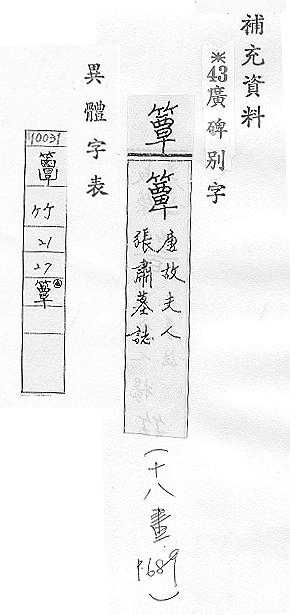 補充資料
※43廣碑別字
簟
簟
唐故夫人
張肅墓誌
(十八畫
P.689)
異體字表
10031
竹
21
27
簟